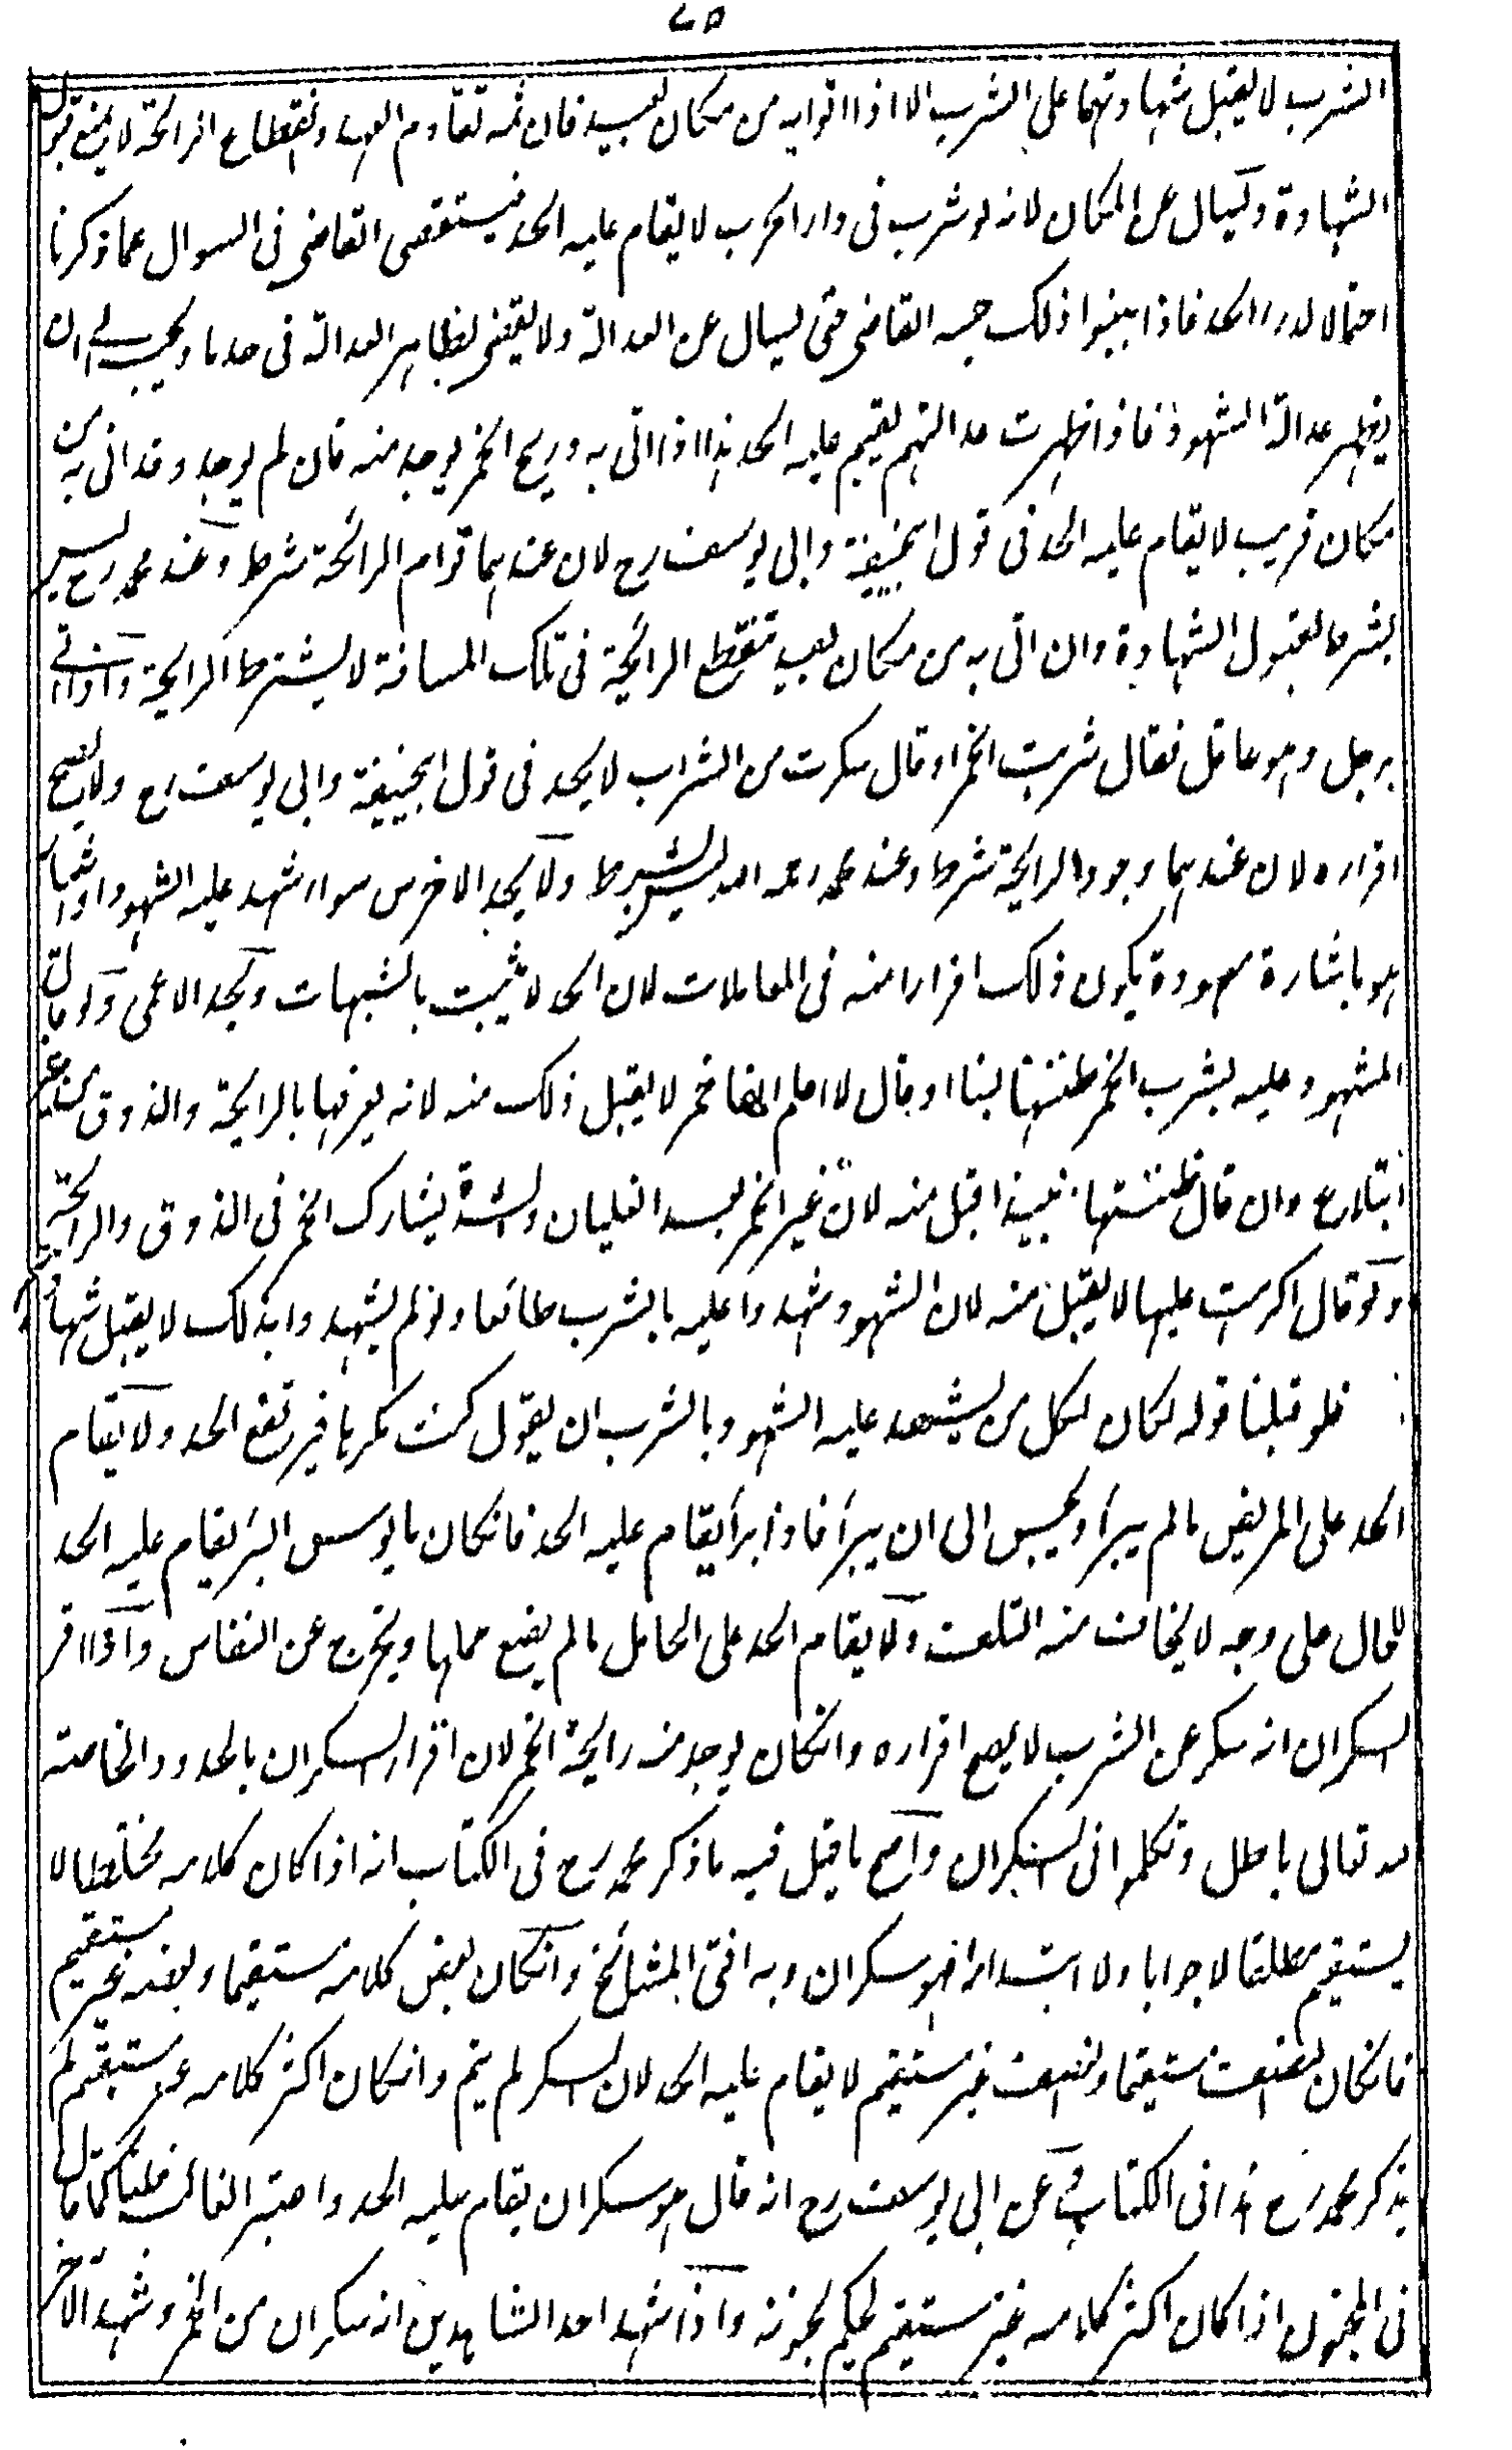 ٧٥
الشرب لا يقبل شهادتهما على الشرب الا اذا اتوا به من مكان بعيد فان ثمه تقادم العهد وانقطاع الرائحة لا يمنع قبول
الشهادة ويسال عن المكان لانه لو شرب فى دار الحرب لا يقام عليه الحد فيستقصى القاضى فى السوال عما ذكرنا
احتمالا لدرء الحد فاذا بينوا ذلك حبسه القاضى حتى يسال عن العدالة ولا يقضى بظاهر العدالة فى حد ما ويحبس الى ان
يظهر عدالة الشهود فاذا ظهرت عدالتهم يقيم عليه الحد هذا اذا اتى به وريح الخمر يوجد منه فان لم يوجد وقد اتى به من
مكان قريب لا يقام عليه الحد فى قول ابيحنيفة وابى يوسف رح لان عندهما قوام الرائحة شرط وعند محمد رح ليس
بشرط لقبول الشهادة وان اتى به من مكان بعيد تنقطع الرائحة فى تلك المسافة لا يشترط الرايحة واذا اتى
برجل وهو عاقل فقال شربت الخمر او قال سكرت من الشراب لا يحد فى قول ابيحنيفة وابى يوسف رح ولا يصح
اقراره لان عندهما وجود الرايحة شرط وعند محمد رحمه الله ليس بشرط ولا يحد الاخرس سواء شهد عليه الشهود او اشار
هو باشارة معهودة يكون ذلك اقرارا منه فى المعاملات لان الحد لا يثبت بالشبهات ويحد الاعمى ولو قال
المشهود عليه بشرب الخمر ظننتها لبنا او قال لا اعلم انها خمر لا يقبل ذلك منه لانه يعرفها بالرايحة والذوق من غير
ابتلاع وان قال ظننتها نبيذا قبل منه لان غير الخمر بعد الغليان والشدة يشارك الخمر فى الذوق والرائحة
ولو قال اكرهت عليها لا يقبل منه لان الشهود شهدوا عليه بالشرب طائعا ولو لم يشهدوا بذلك لا يقبل شهادتهم
فلو قبلنا قوله لكان لكل من يشهد عليه الشهود بالشرب ان يقول كنت مكرها فيرتفع الحد ولا يقام
الحد على المريض ما لم يبرأ ويحبس الى ان يبرأ فاذا برأ يقام عليه الحد فانكان مايوس البرء يقام عليه الحد
للحال على وجه لا يخاف منه التلف ولا يقام الحد على الحامل ما لم يضع حملها ويخرج عن النفاس واذا اقر
السكران انه سكر عن الشرب لا يصح اقراره وانكان يوجد منه رايحة الخمر لان اقرار السكران بالحدود الخاصة
لله تعالى باطل وتكلموا فى السكران واصح ما قيل فيه ما ذكر محمد رح فى الكتاب انه اذا كان كلامه مختلطا لا
يستقيم مطلقا لا جوابا ولا ابتداء فهو سكران وبه افتى المشائخ وانكان بعض كلامه مستقيما وبعضه غير مستقيم
فانكان نصفه مستقيما ونصفه غير مستقيم لا يقام عليه الحد لان السكر لم يتم وانكان اكثر كلامه غير مستقيم لم
يذكر محمد رح هذا فى الكتاب وعن ابى يوسف رح انه قال هو سكران يقام عليه الحد واعتبر الغالب فلنا كما قال
فى المجنون اذا كان اكثر كلامه غير مستقيم يحكم بجنونه واذا شهد احد الشاهدين انه سكران من الخمر وشهد الآخر